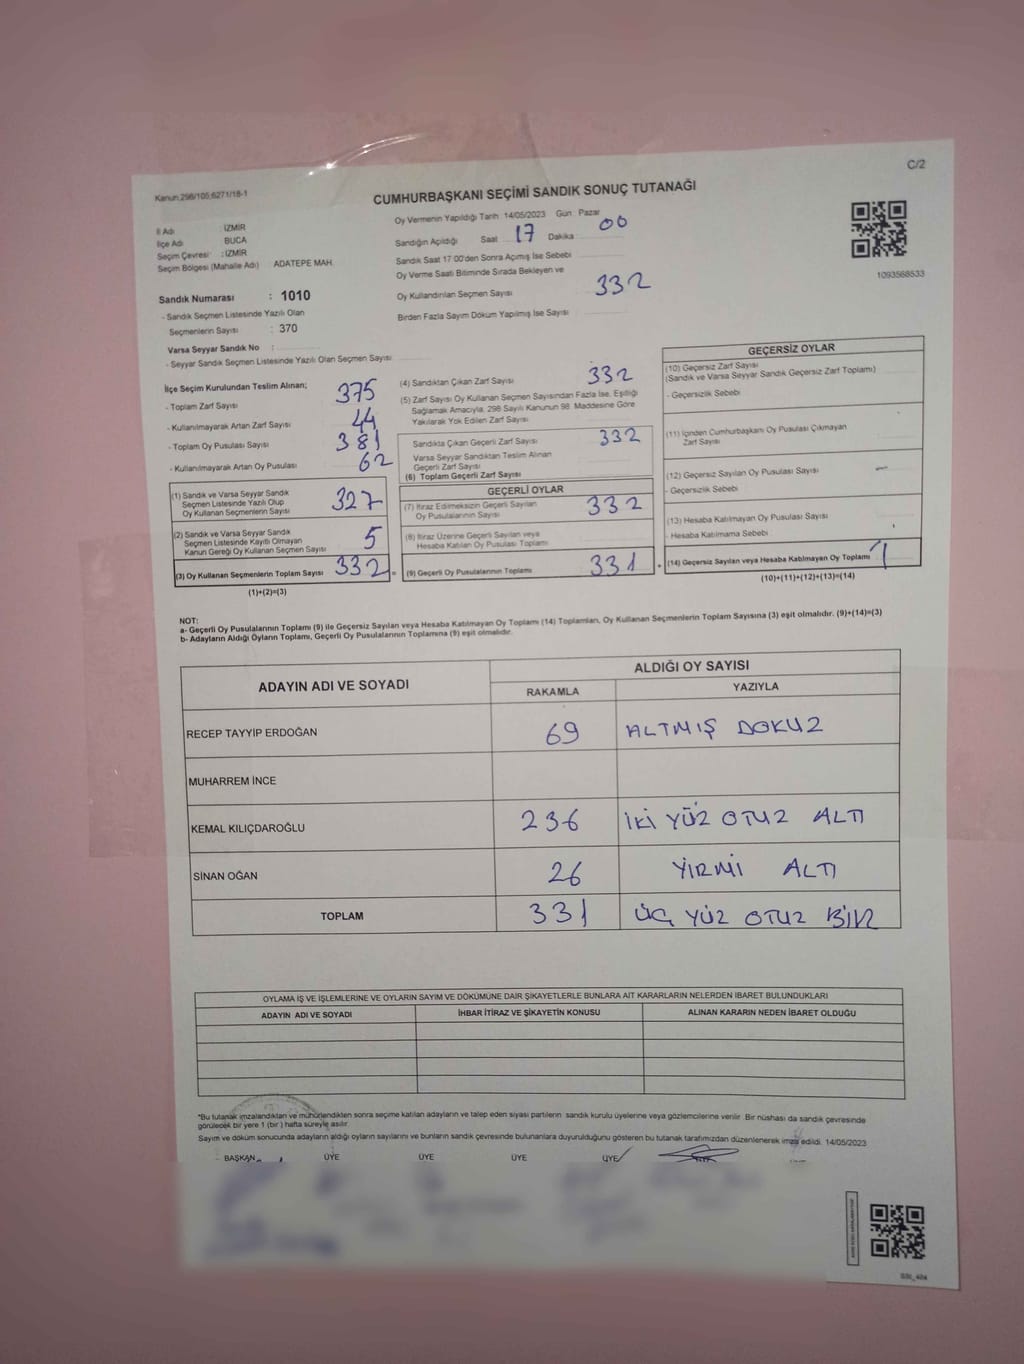 C/2
Kanun:298/105,6271/18-1
CUMHURBAŞKANI SEÇİMİ SANDIK SONUÇ TUTANAĞI
İl Adı : İZMİR
İlçe Adı BUCA
Seçim Çevresi : İZMİR
Seçim Bölgesi (Mahalle Adı) ADATEPE MAH.
Sandık Numarası : 1010
- Sandık Seçmen Listesinde Yazılı Olan
Seçmenlerin Sayısı : 370
Varsa Seyyar Sandık No :
- Seyyar Sandık Seçmen Listesinde Yazılı Olan Seçmen Sayısı
Oy Vermenin Yapıldığı Tarih 14/05/2023 Gün Pazar
Sandığın Açıldığı Saat 17 Dakika 00
Sandık Saat 17 00'den Sonra Açımış İse Sebebi
Oy Verme Saati Bitiminde Sırada Bekleyen ve
Oy Kullandırılan Seçmen Sayısı 332
Birden Fazla Sayım Döküm Yapılmış İse Sayısı
1093568533
İlçe Seçim Kurulundan Teslim Alınan;
- Toplam Zarf Sayısı 375
- Kullanılmayarak Artan Zarf Sayısı 44
- Toplam Oy Pusulası Sayısı 381
- Kullanılmayarak Artan Oy Pusulası 62
(1) Sandık ve Varsa Seyyar Sandık
Seçmen Listesinde Yazılı Olup
Oy Kullanan Seçmenlerin Sayısı 327
(2) Sandık ve Varsa Seyyar Sandık
Seçmen Listesinde Kayıtlı Olmayan
Kanun Gereği Oy Kullanan Seçmen Sayısı 5
(3) Oy Kullanan Seçmenlerin Toplam Sayısı 332 =
(1)+(2)=(3)
(4) Sandıktan Çıkan Zarf Sayısı 332
(5) Zarf Sayısı Oy Kullanan Seçmen Sayısından Fazla İse, Eşitliği
Sağlamak Amacıyla, 298 Sayılı Kanunun 98. Maddesine Göre
Yakılarak Yok Edilen Zarf Sayısı
Sandıkta Çıkan Geçerli Zarf Sayısı 332
Varsa Seyyar Sandıktan Teslim Alınan
Geçerli Zarf Sayısı
(6) Toplam Geçerli Zarf Sayısı
GEÇERLİ OYLAR
(7) İtiraz Edilmeksizin Geçerli Sayılan
Oy Pusulalarının Sayısı 332
(8) İtiraz Üzerine Geçerli Sayılan veya
Hesaba Katılan Oy Pusulası Toplamı
(9) Geçerli Oy Pusulalarının Toplamı 331 +
GEÇERSİZ OYLAR
(10) Geçersiz Zarf Sayısı
(Sandık ve Varsa Seyyar Sandık Geçersiz Zarf Toplamı)
- Geçersizlik Sebebi
(11) İçinden Cumhurbaşkanı Oy Pusulası Çıkmayan
Zarf Sayısı
(12) Geçersiz Sayılan Oy Pusulası Sayısı -
- Geçersizlik Sebebi
(13) Hesaba Katılmayan Oy Pusulası Sayısı
- Hesaba Katılmama Sebebi
(14) Geçersiz Sayılan veya Hesaba Katılmayan Oy Toplamı 1
(10)+(11)+(12)+(13)=(14)
NOT:
a- Geçerli Oy Pusulalarının Toplamı (9) ile Geçersiz Sayılan veya Hesaba Katılmayan Oy Toplamı (14) Toplamları, Oy Kullanan Seçmenlerin Toplam Sayısına (3) eşit olmalıdır. (9)+(14)=(3)
b- Adayların Aldığı Oyların Toplamı, Geçerli Oy Pusulalarının Toplamına (9) eşit olmalıdır.
ADAYIN ADI VE SOYADI ALDIĞI OY SAYISI
RAKAMLA YAZIYLA
RECEP TAYYİP ERDOĞAN 69 ALTMIŞ DOKUZ
MUHARREM İNCE
KEMAL KILIÇDAROĞLU 236 İKİ YÜZ OTUZ ALTI
SİNAN OĞAN 26 YİRMİ ALTI
TOPLAM 331 ÜÇ YÜZ OTUZ BİR
OYLAMA İŞ VE İŞLEMLERİNE VE OYLARIN SAYIM VE DÖKÜMÜNE DAİR ŞİKAYETLERLE BUNLARA AİT KARARLARIN NELERDEN İBARET BULUNDUKLARI
ADAYIN ADI VE SOYADI İHBAR İTİRAZ VE ŞİKAYETİN KONUSU ALINAN KARARIN NEDEN İBARET OLDUĞU
*Bu tutanak imzalandıktan ve mühürlendikten sonra seçime katılan adayların ve talep eden siyasi partilerin sandık kurulu üyelerine veya gözlemcilerine verilir. Bir nüshası da sandık çevresinde
görülecek bir yere 1 (bir) hafta süreyle asılır.
Sayım ve döküm sonucunda adayların aldığı oyların sayılarını ve bunların sandık çevresinde bulunanlara duyurulduğunu gösteren bu tutanak tarafımızdan düzenlenerek imza edildi. 14/05/2023
BAŞKAN ÜYE ÜYE ÜYE ÜYE